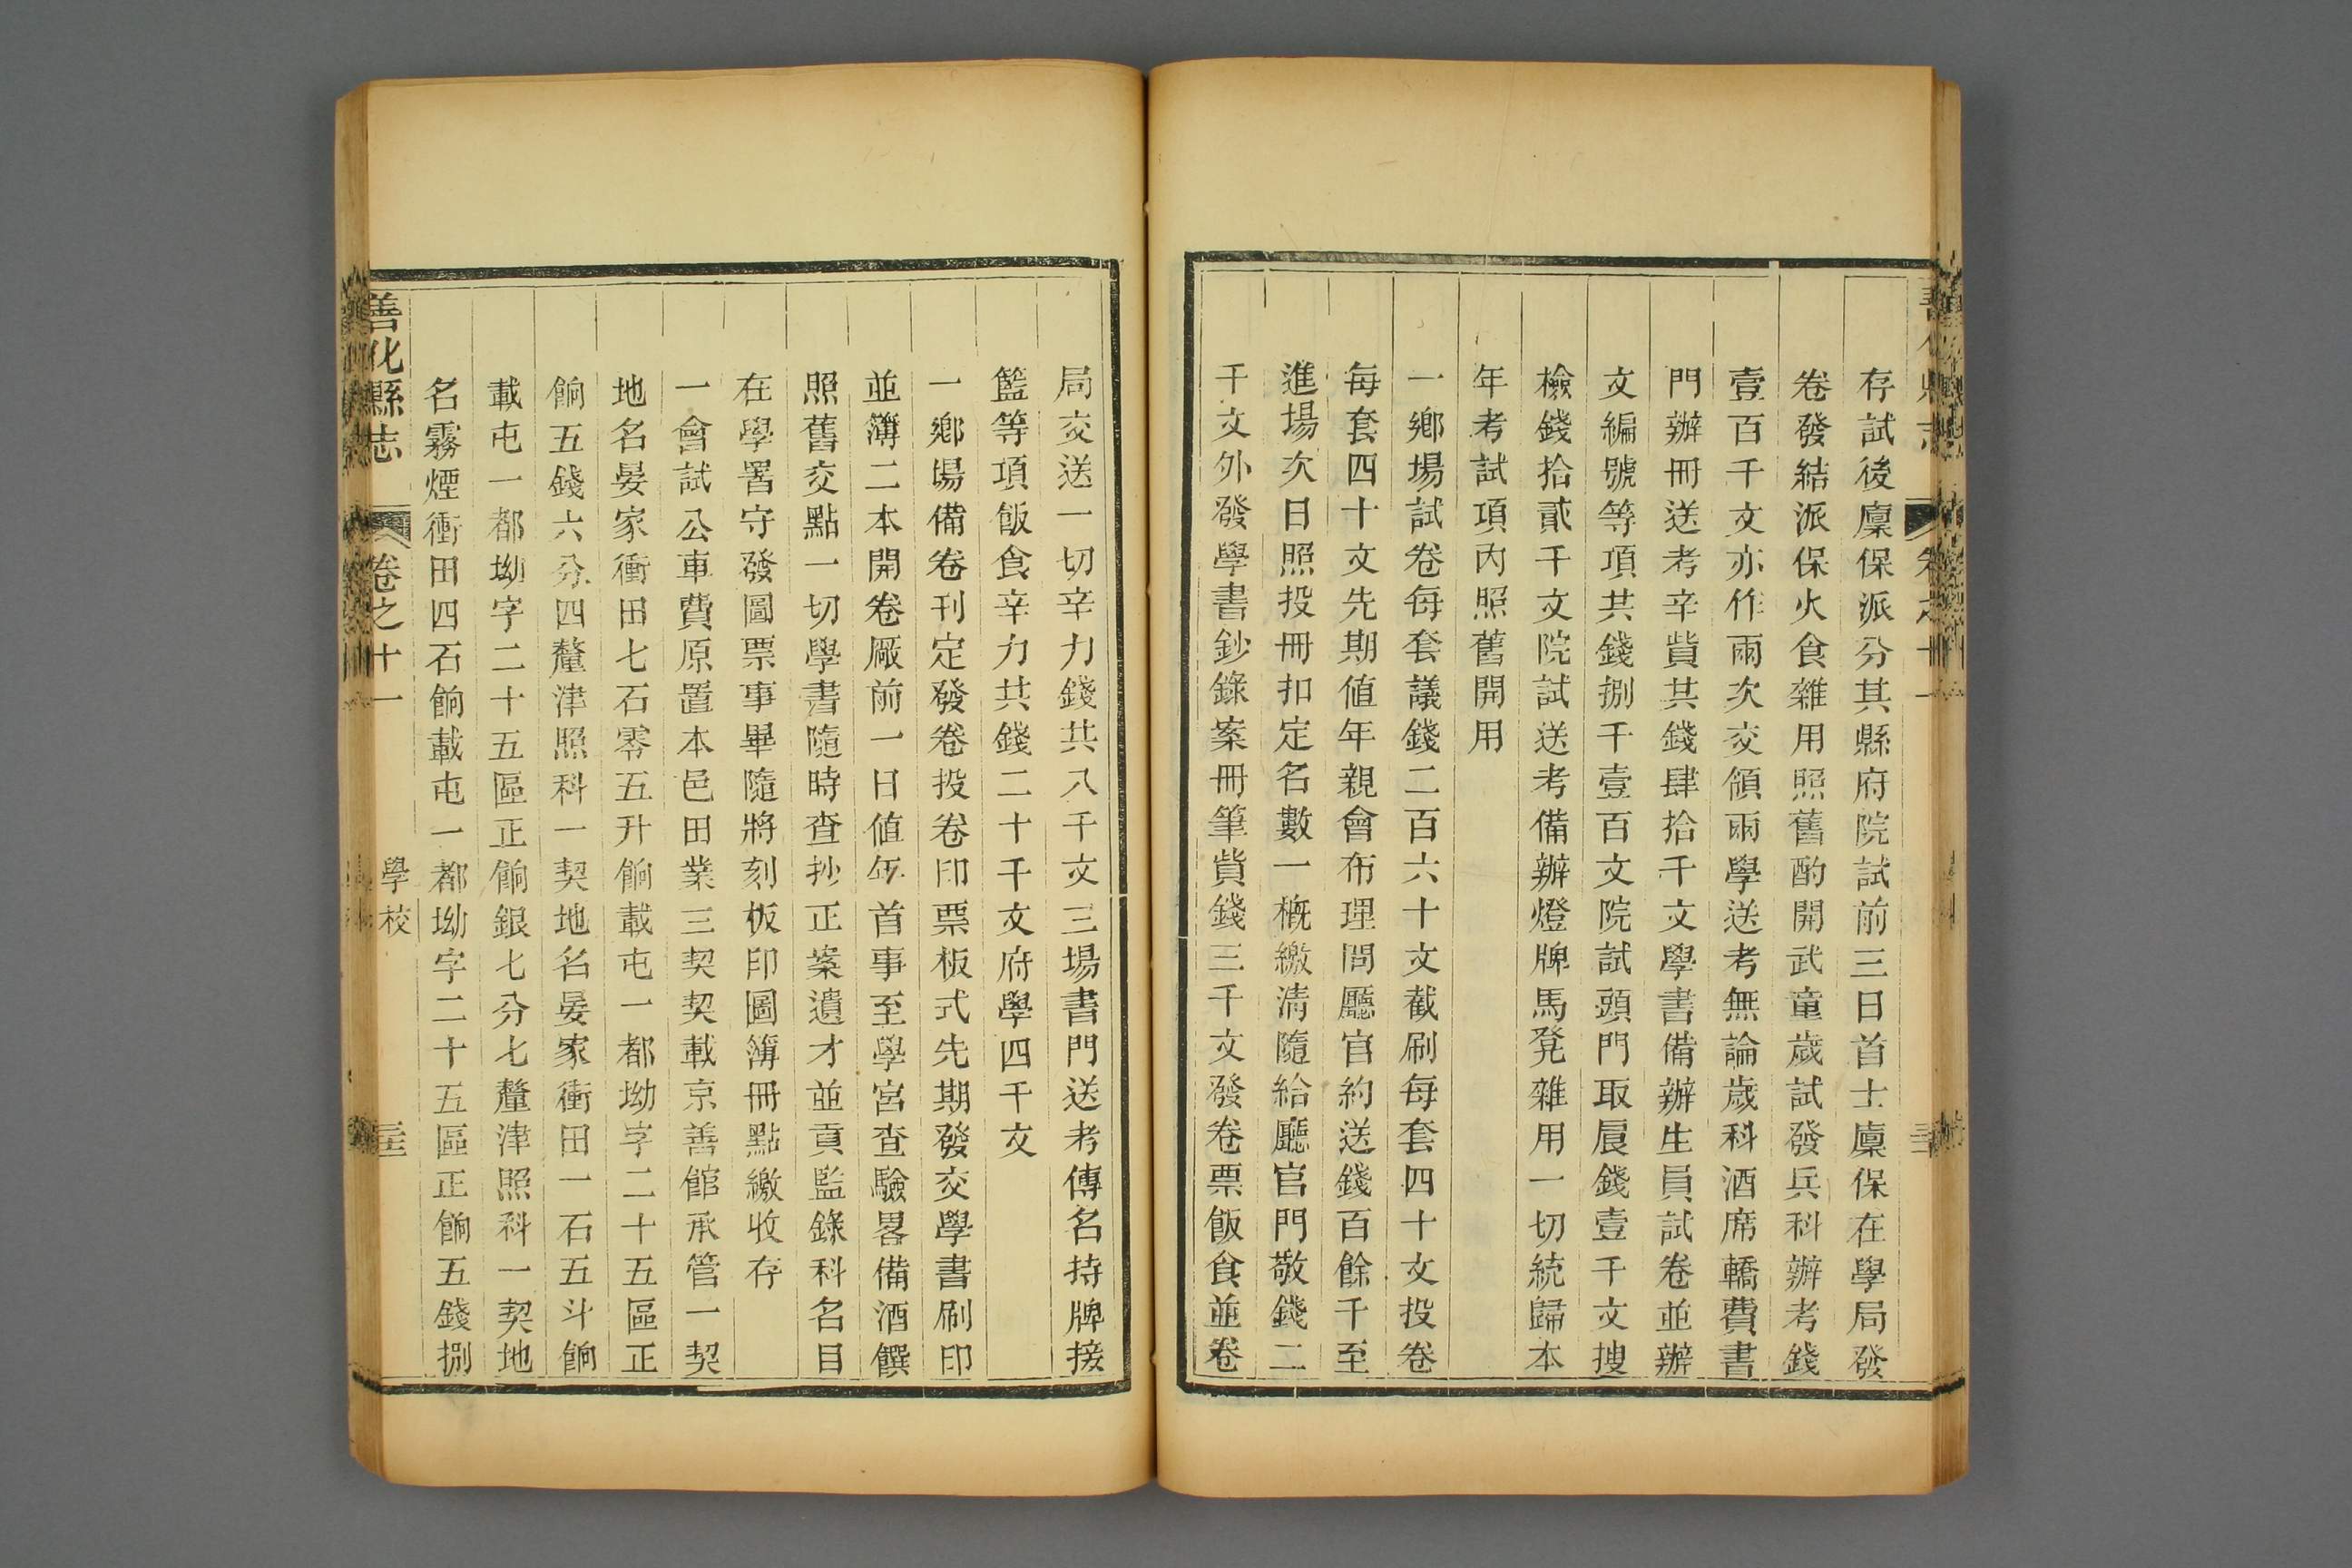 存試後廩保派分其縣府院試前三日首士廩保在學局發
卷發結派保火食雜用照舊酌開武童歲試發兵科辦考錢
壹百千文亦作兩次交領兩學送考無論歲科酒席轎費書
門辦冊送考辛貲共錢肆拾千文學書備辦生員試卷並辦
文編號等項共錢捌千壹百文院試頭門取扆錢壹千文搜
檢錢拾貳千文院試送考備辦燈牌馬凳雜用一切統歸本
年考試項內照舊開用
一鄉場試卷每套議錢二百六十文截刷每套四十文投卷
每套四十文先期值年親會布理問廳官約送錢百餘千至
進場次日照投冊扣定名數一概繳清隨給廳官門敬錢二
千文外發學書鈔錄案冊筆貲錢三千文發卷票飯食並卷
局交送一切辛力錢共八千文三場書門送考傳名持牌接
籃等項飯食辛力共錢二十千文府學四千文
一鄉場備卷刊定發卷投卷印票板式先期發交學書刷印
並簿二本開卷厰前一日值年首事至學宮查驗畧備酒饌
照舊交點一切學書隨時查抄正案遺才並貢監錄科名目
在學署守發圖票事畢隨將刻板印圖簿冊點繳收存
一會試公車費原置本邑田業三契契載京善館承管一契
地名晏家衝田七石零五升餉載屯一都坳字二十五區正
餉五錢六分四釐津照科一契地名晏家衝田一石五斗餉
載屯一都坳字二十五區正餉銀七分七釐津照科一契地
名霧煙衝田四石餉載屯一都坳字二十五區正餉五錢捌
善化縣志 卷之十一 學校